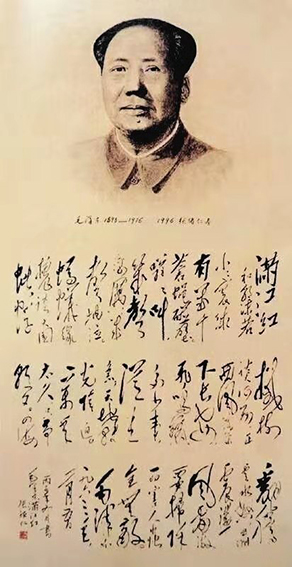 毛泽东 1893—1976 1996
满江红
和郭沫若
小小寰球
有几个
苍蝇碰壁
嗡嗡叫
几声
凄厉几声
抽泣
蚂蚁缘
槐夸大国
蚍蜉
撼树
谈何易正
西风落叶
下长安
飞鸣镝
多少事
从来
急天地转
光阴迫
一万年
太久
只争朝夕
翻腾
云水怒
五洲
震荡
风雷激
要扫除
一切害人虫
全无敌
毛泽东
一九六三年
一月九日
满江红